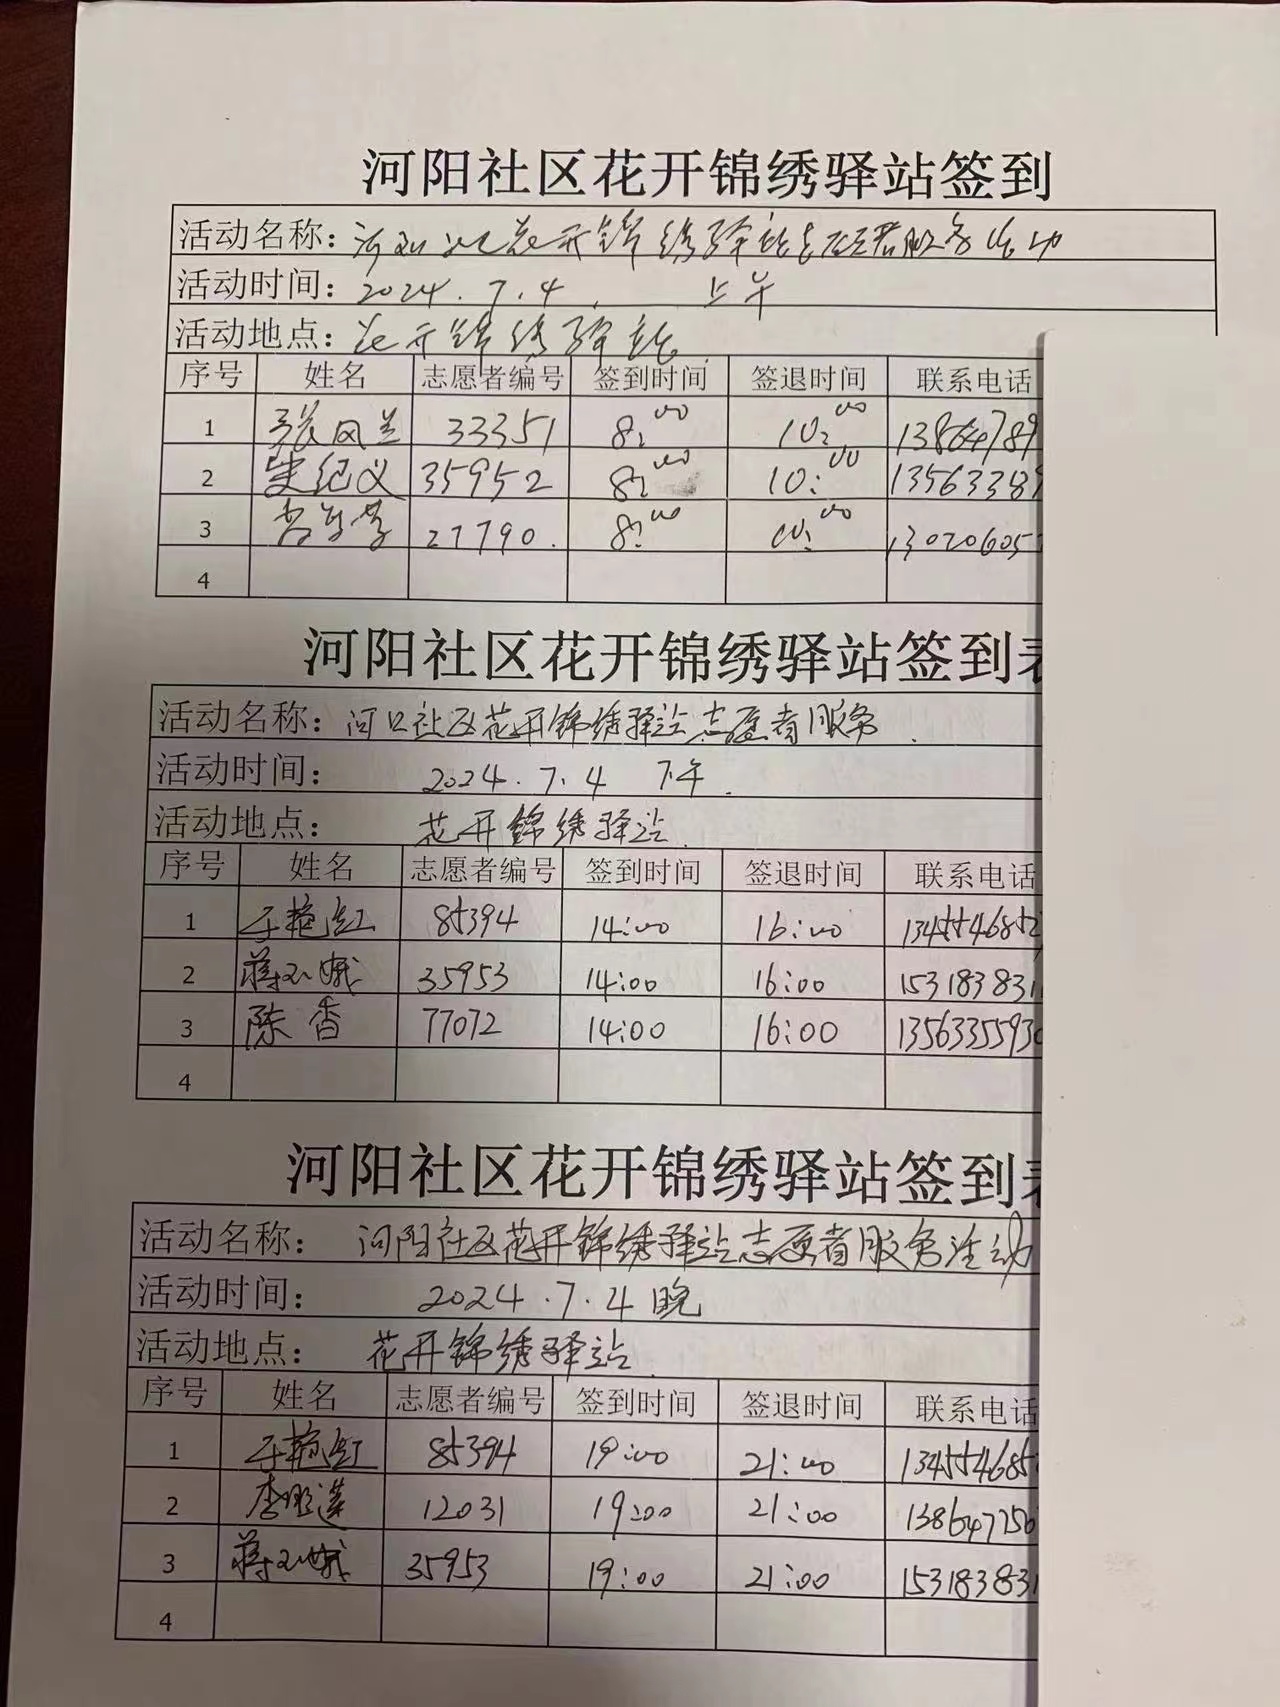 河阳社区花开锦绣驿站签到
活动名称：花开锦绣驿站志愿者服务活动
活动时间：2024.7.4. 上午
活动地点：花开锦绣驿站
序号 姓名 志愿者编号 签到时间 签退时间 联系电话
1 张凤兰 33351 8:00 10:00 13864789
2 史纪义 35952 8:00 10:00 13563389
3 27790. 8:00 10:00 13020605
4
河阳社区花开锦绣驿站签到表
活动名称：河口社区花开锦绣驿站志愿者服务.
活动时间： 2024.7.4 下午.
活动地点： 花开锦绣驿站.
序号 姓名 志愿者编号 签到时间 签退时间 联系电话
1 于艳红 85394 14:00 16:00 1345546852
2 蒋玉娥 35953 14:00 16:00 153183831
3 陈香 77072 14:00 16:00 1356335593
4
河阳社区花开锦绣驿站签到表
活动名称： 河阳社区花开锦绣驿站志愿者服务活动
活动时间： 2024.7.4晚
活动地点： 花开锦绣驿站.
序号 姓名 志愿者编号 签到时间 签退时间 联系电话
1 于艳红 85394 19:00 21:00 134554685
2 12031 19:00 21:00 138647750
3 蒋玉娥 35953 19:00 21:00 15318383
4